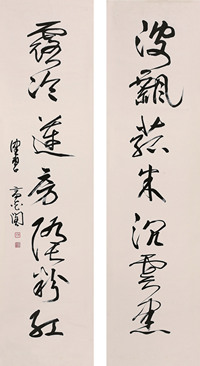 波飄菰米沉雲黑
露冷蓮房墜粉紅